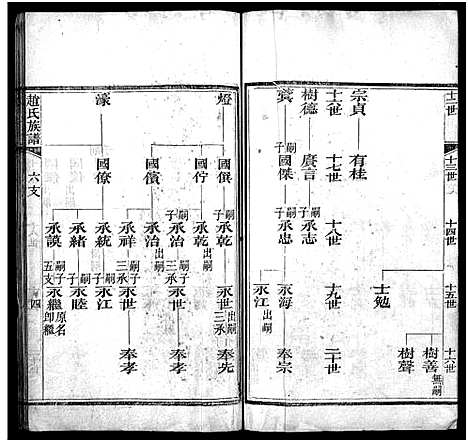 十二世
十三世
十四世
十五世
十六世
士勉
樹善 無嗣
樹聲
十六世
十七世
十八世
十九世
二十世
宗貞 有桂
樹德 廣言 嗣子承志
嗣子國傑 嗣子承忠 永海 奉宗
永江 出嗣
燈
國僎 嗣子承乾 永世 出嗣三承 奉先
國佇 承乾 出嗣
嗣子承治 嗣子三承永世 奉孝
國儐 承治 出嗣
承祥 嗣子三承永世 奉孝
濠
國僚 承統 嗣子永江
承緒 嗣子永睦
承謨 嗣子五支永繼 原名印繼
趙氏族譜
六支
四